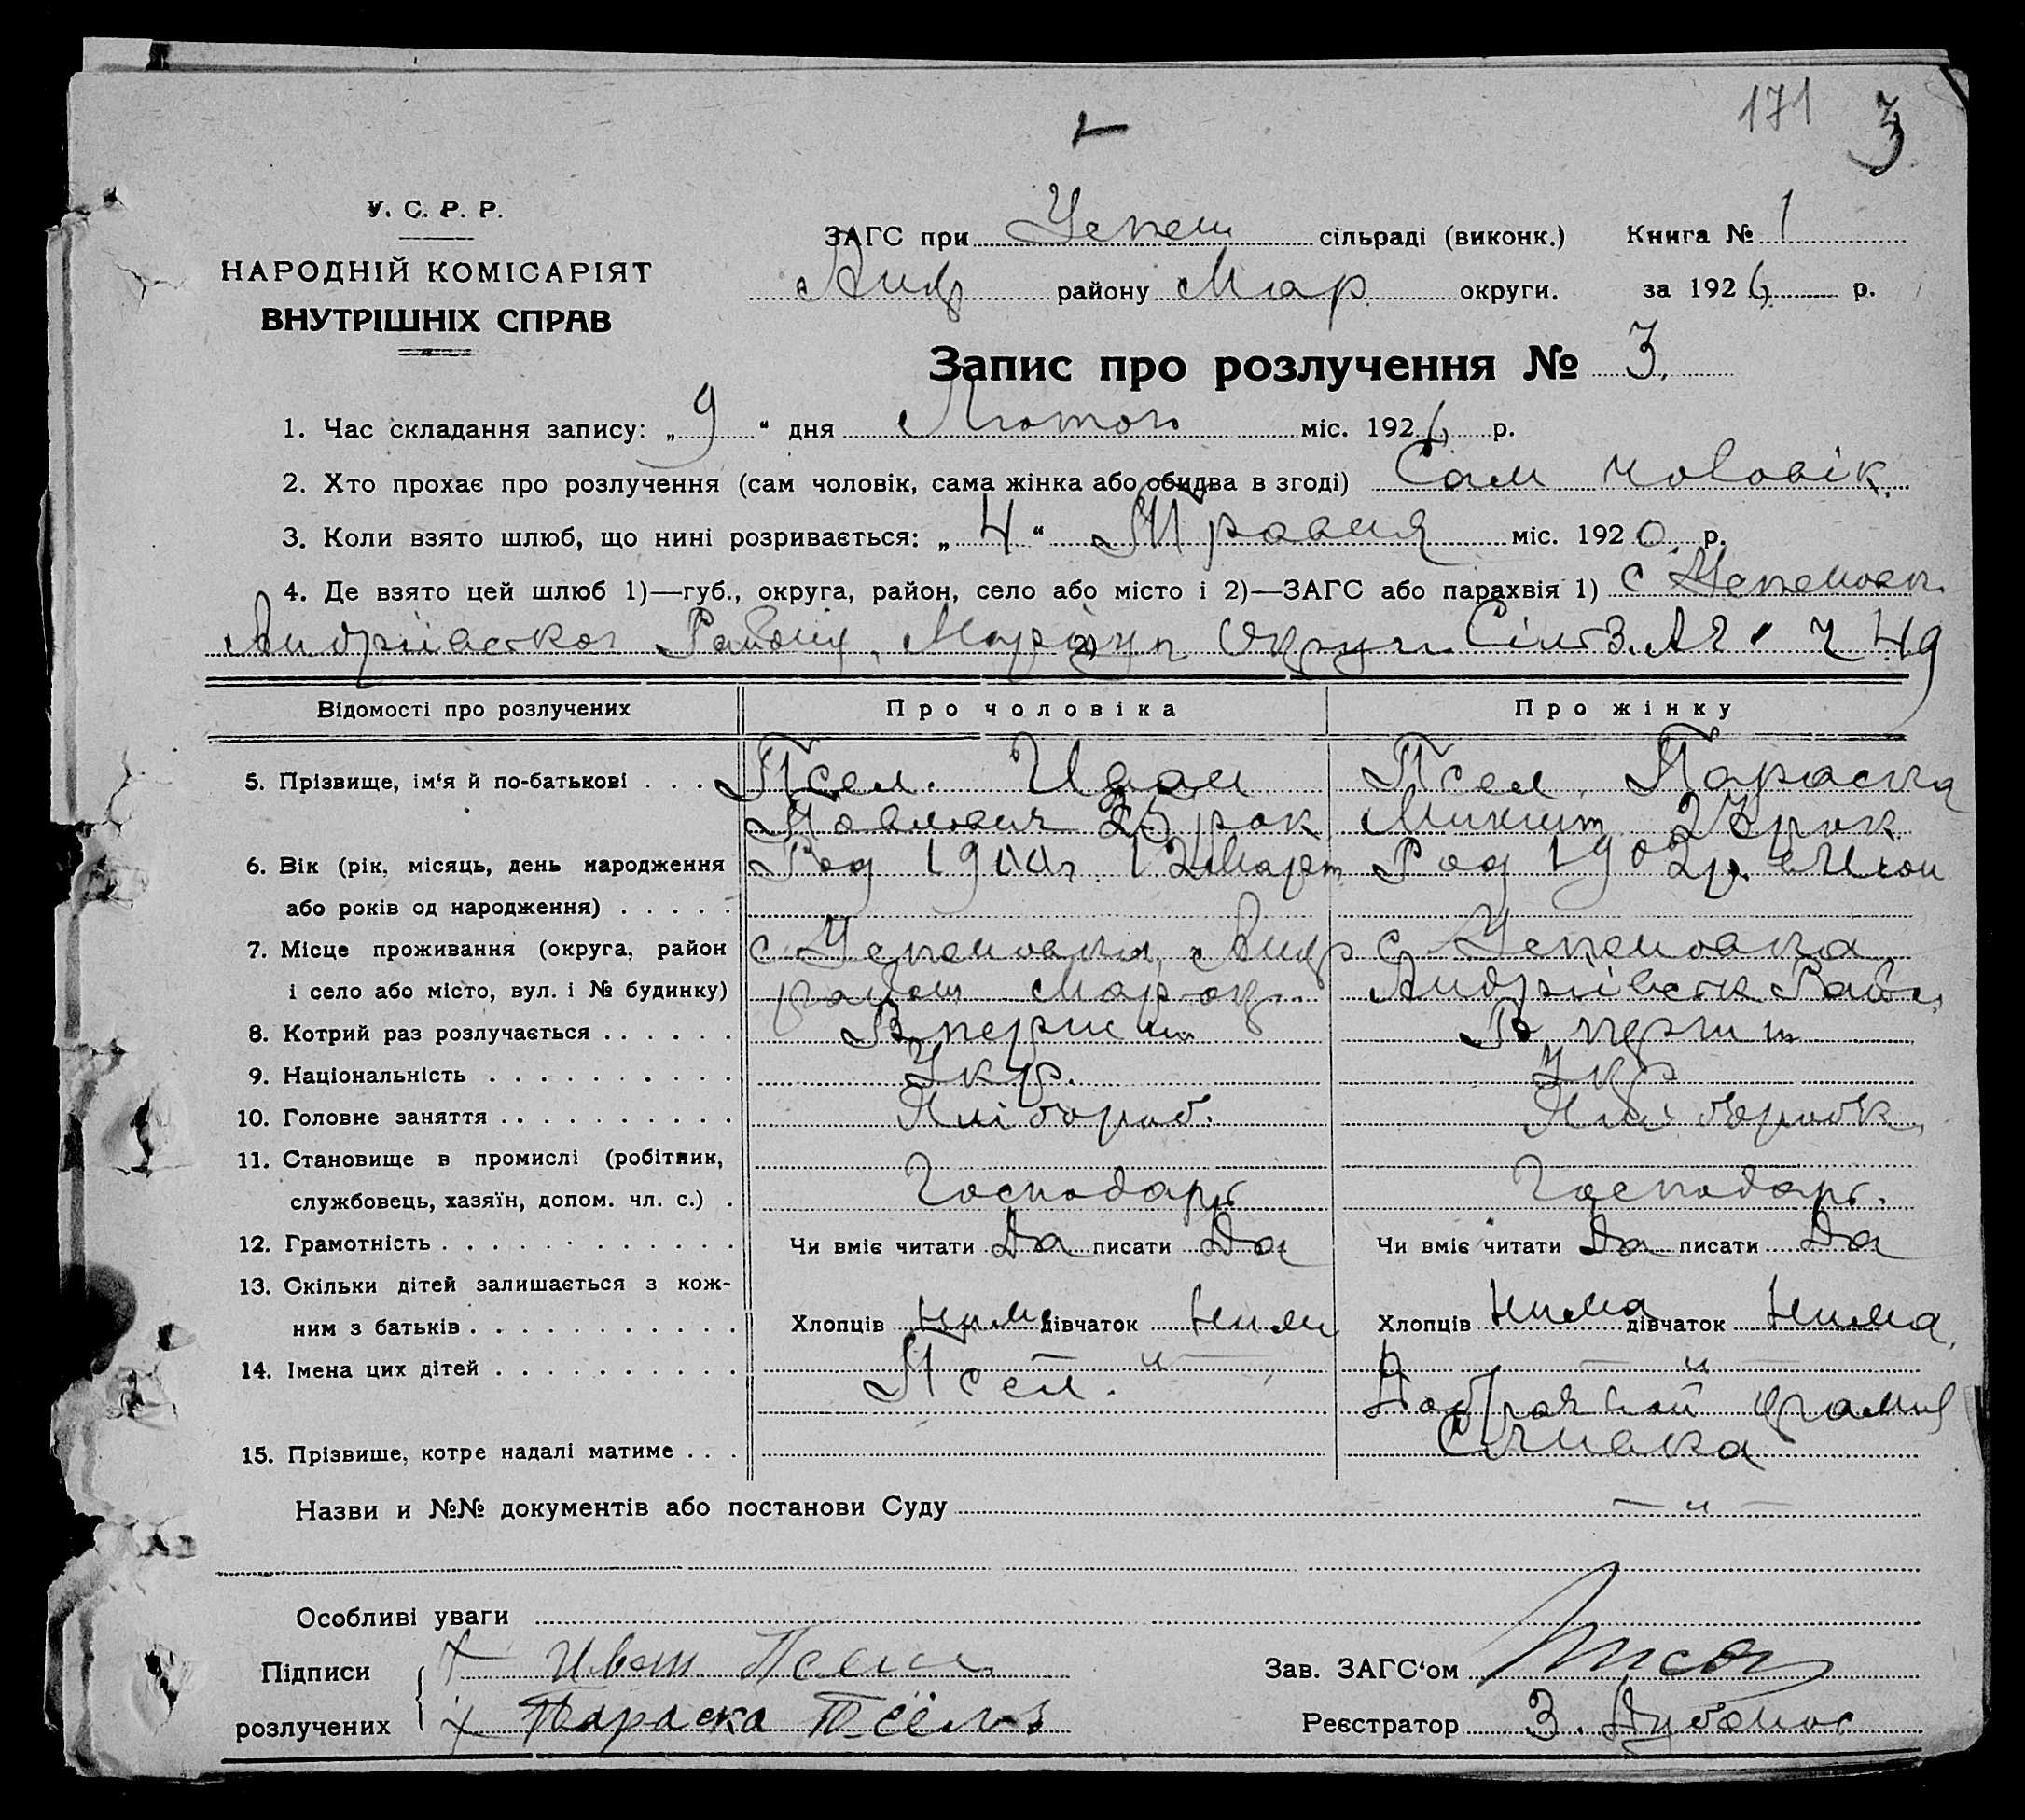 171 3
У. С. Р. Р.
НАРОДНІЙ КОМІСАРІЯТ
ВНУТРІШНІХ СПРАВ
ЗАГС при Успен сільраді (виконк.) Книга № 1
Андр району Мар округи. за 1926 р.
Запис про розлучення № 3.
1. Час складання запису: „ 9 “ дня Лютого міс. 1926 р.
2. Хто прохає про розлучення (сам чоловік, сама жінка або обидва в згоді) Сам чоловік.
3. Коли взято шлюб, що нині розривається: „ 4 “ Травня міс. 1920 р.
4. Де взято цей шлюб 1)—губ., округа, район, село або місто і 2)—ЗАГС або парахвія 1) с Успеновк
Андріївског Району, Маріуп 2) Округи 49
Відомості про розлучених Про чоловіка Про жінку
5. Прізвище, ім‘я й по-батькові . . . Псел. Иван Псел, Параска
Павлович 26 рок Микит 23 рок
6. Вік (рік, місяць, день народження Род 1900 г. 12 Март Род 1902 р.
або років од народження) . . . . .
7. Місце проживання (округа, район с Успеновка, Андр с Успеновка
і село або місто, вул. і № будинку) район Мар окр. Андріївськ Район
8. Котрий раз розлучається . . . . . . В перший В перший
9. Національність . . . . . . . . . . Укр. Укр
10. Головне заняття . . . . . . . . . . Хлібороб. Хліборобк
11. Становище в промислі (робітник,
службовець, хазяїн, допом. чл. с.) . Господарь Господарь.
12. Грамотність . . . . . . . . . . . . Чи вміє читати Да писати Да Чи вміє читати Да писати Да
13. Скільки дітей залишається з кож-
ним з батьків . . . . . . . . . . . Хлопців нима дівчаток нима Хлопців нима дівчаток нима
14. Імена цих дітей . . . . . . . . . . — „ — — „ —
Псел. Добрачной фамил
15. Прізвише, котре надалі матиме . . .
Назви и №№ документів або постанови Суду — „ —
Особливі уваги
Підписи Иван Псел
розлучених Параска Псёлъ
Зав. ЗАГС‘ом
Реєстратор З. Дубонос